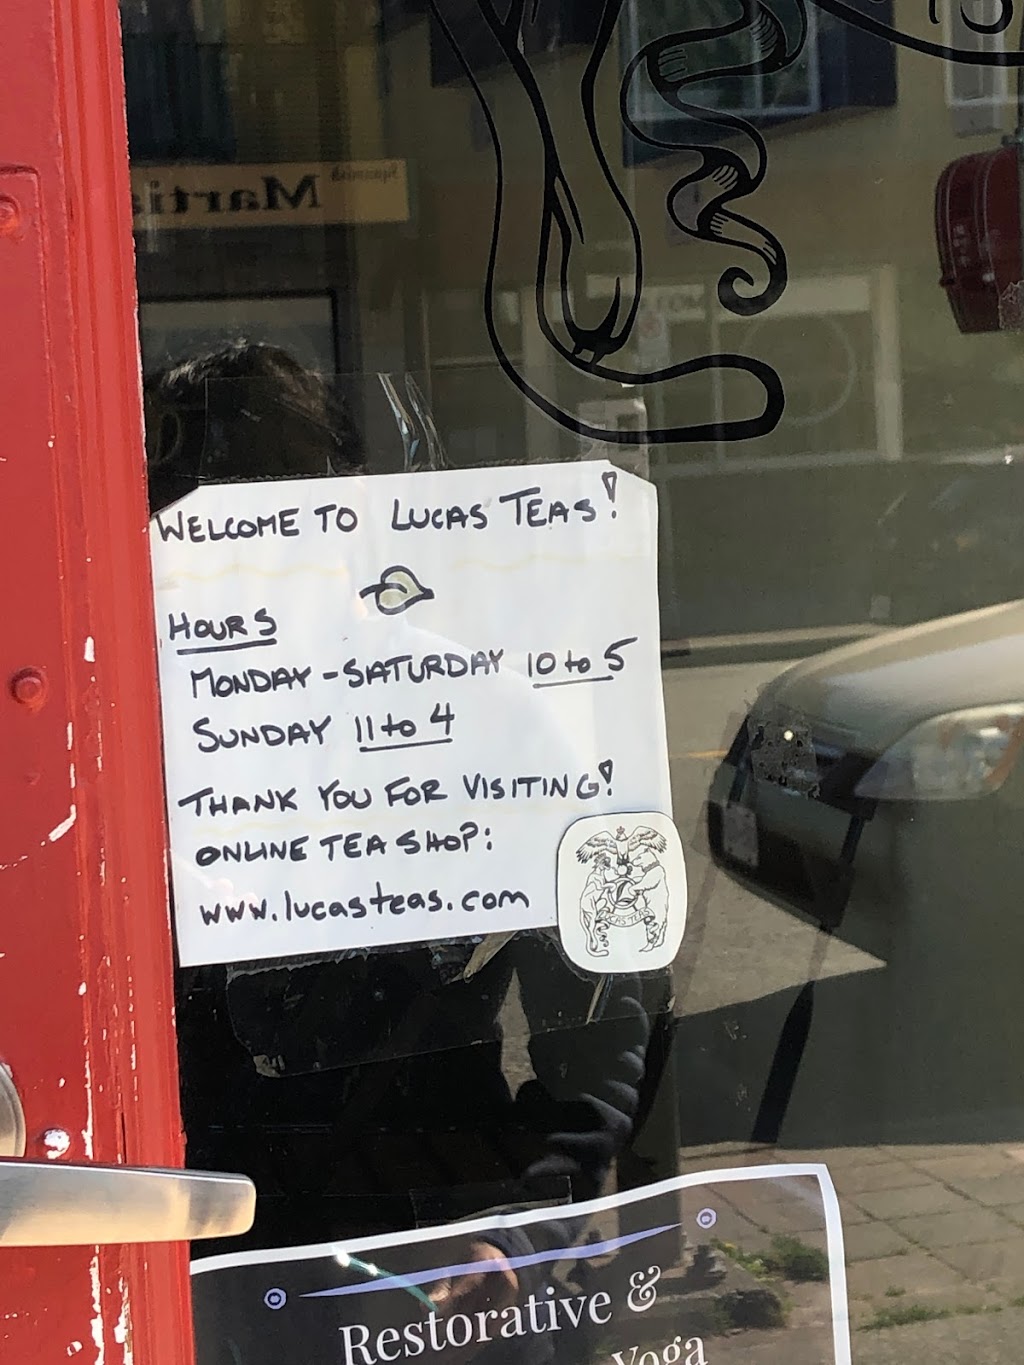 Spanish
Marti
WELCOME TO LUCAS TEAS!
HOURS
MONDAY - SATURDAY 10 to 5
SUNDAY 11 to 4
THANK YOU FOR VISITING!
ONLINE TEA SHOP:
www.lucasteas.com
LUCAS TEAS
Restorative &
Yoga